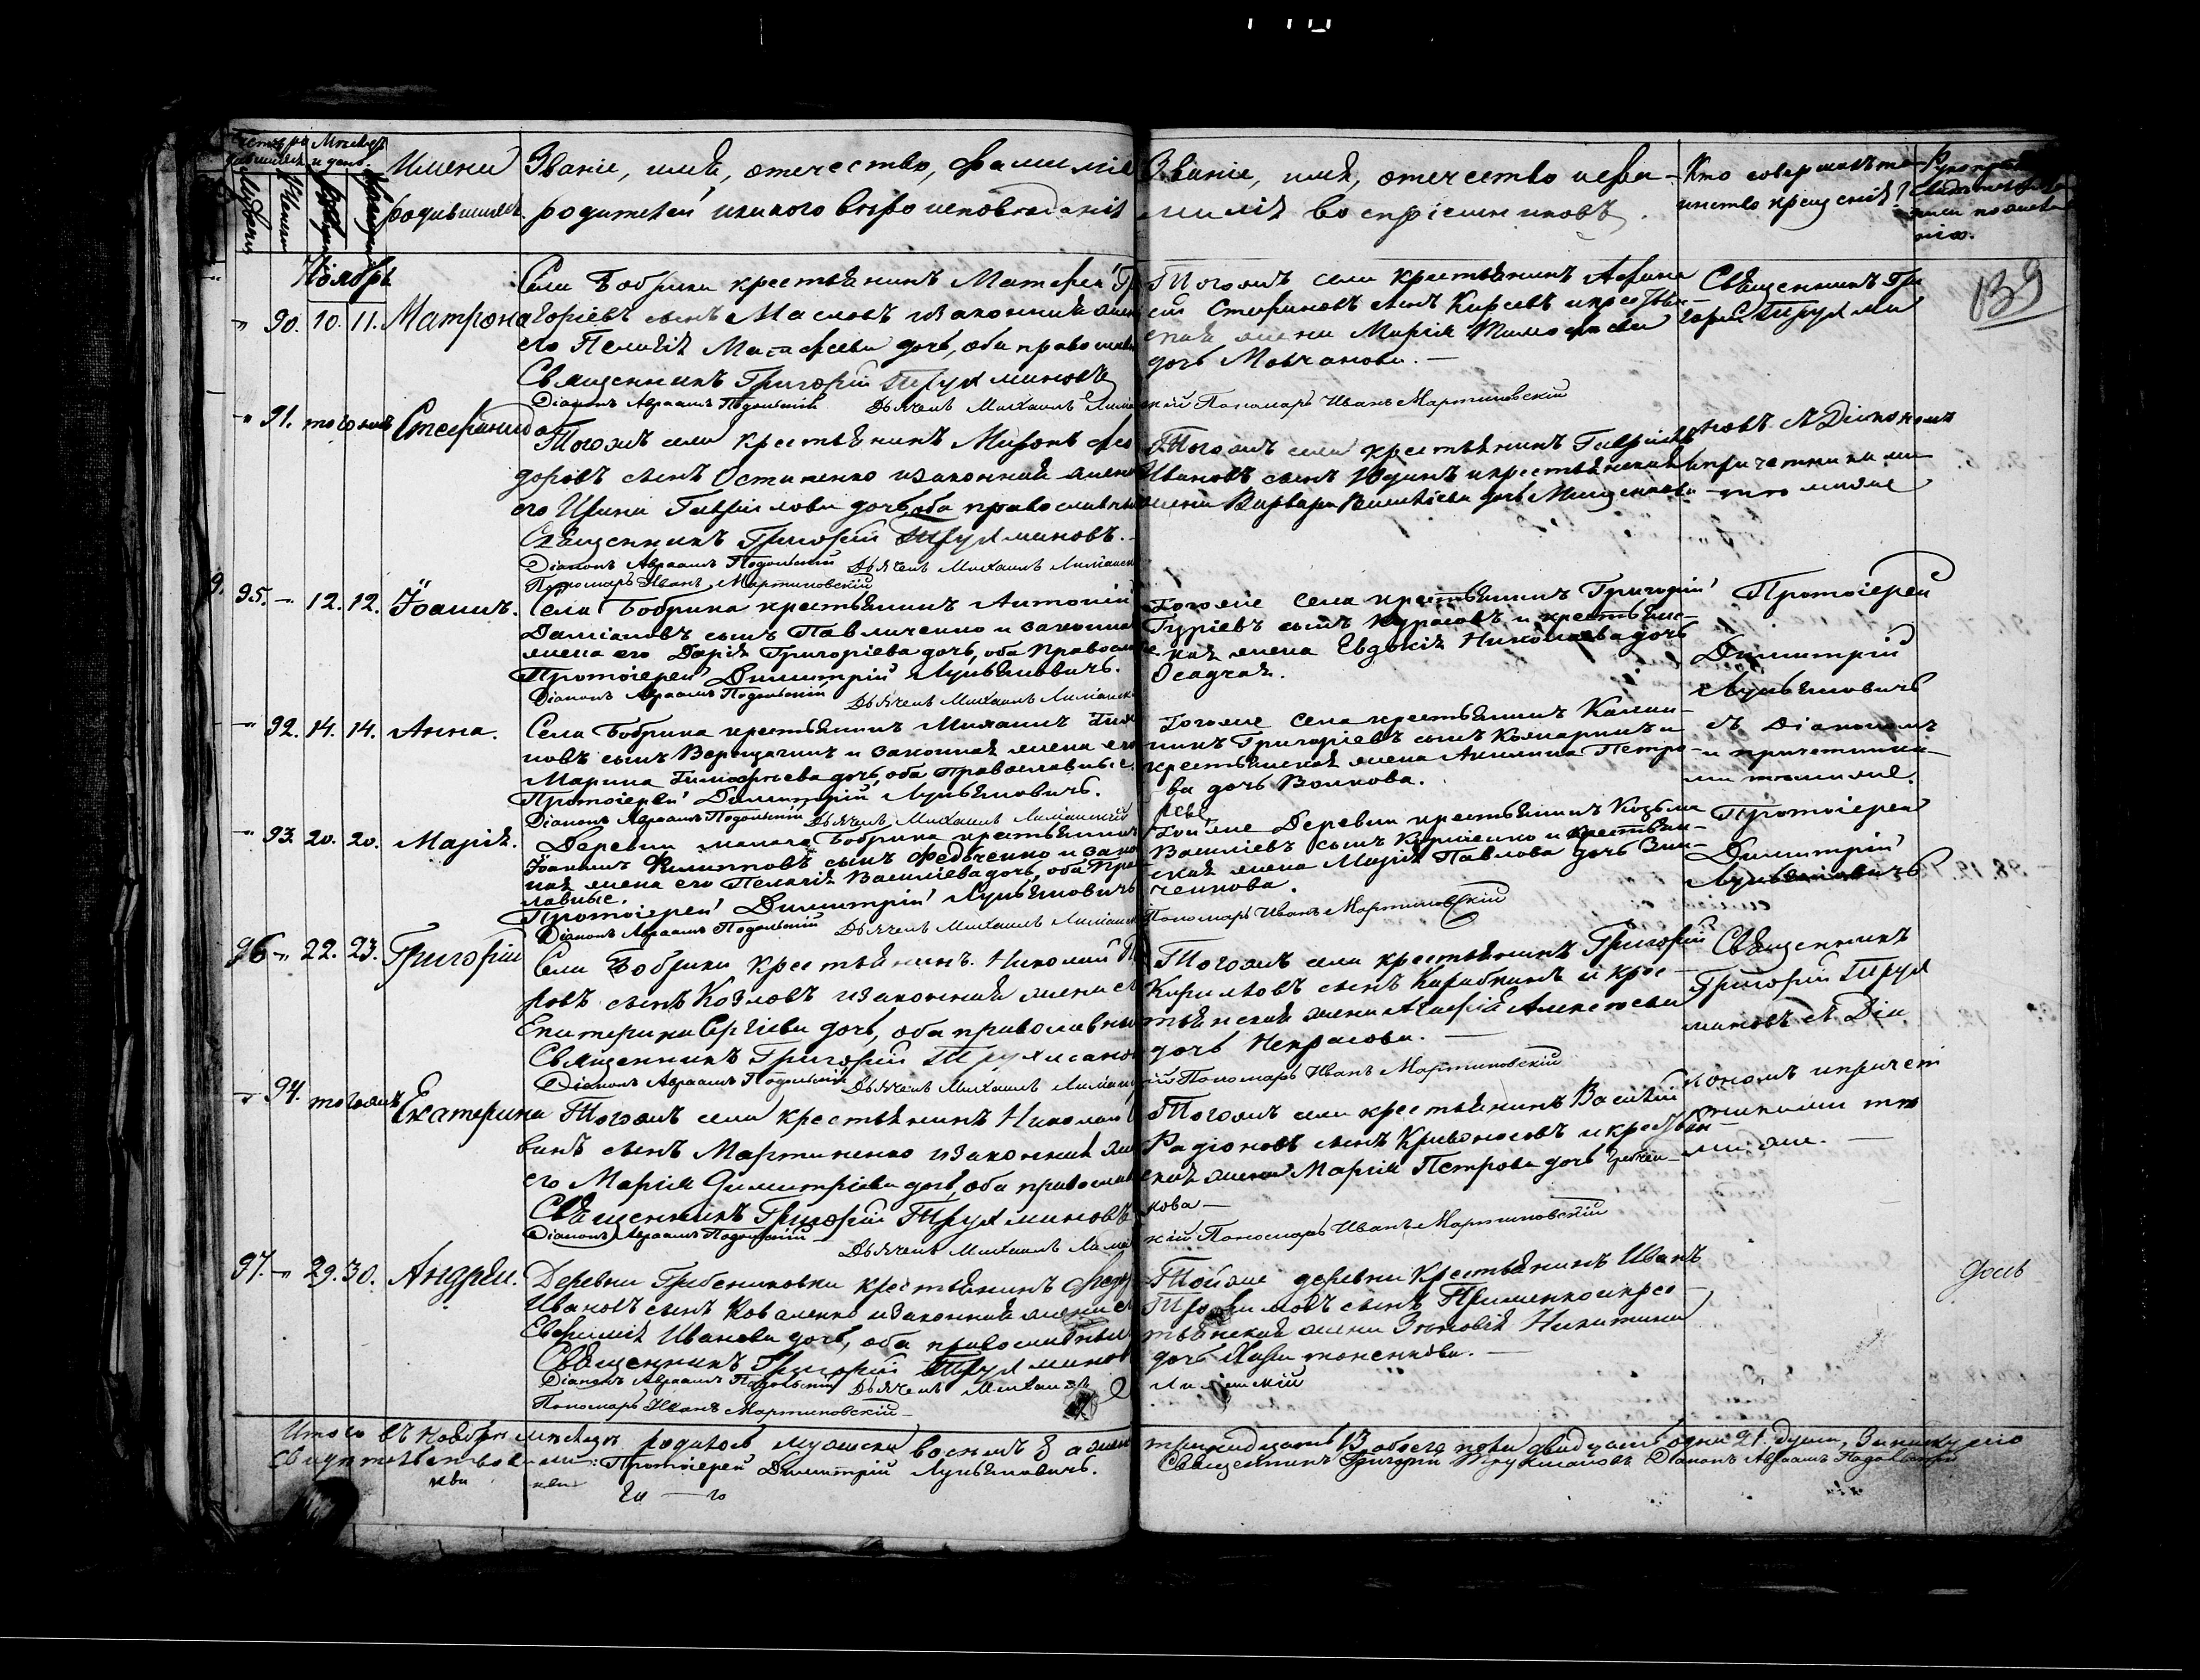 139
Имена
родившихся.
Званіе, имя, отечество, фамилія
родителей и какого вѣроисповѣданія
Званіе, имя, отечество и фа-
милія воспріемниковъ.
Кто совершалъ та-
инство крещенія?
Ноябрь
" 90. 10. 11. Матрона
Села Бобрика крестьянинъ Матфей Гр
горіевъ сынъ Масловъ и законная жена
его Пелагія Матфеева дочь, оба православ
Священникъ Григорій Трухмановъ
Діаконъ Авраамъ Подольскій Дьячекъ Михаилъ Лиман
Тогожъ села крестьянинъ Афана
сій Стефановъ сынъ Киреевъ и крестьян-
ская жена Марія Тимофеева
дочь Мовчанова.—
скій Пономарь Иванъ Мартиновскій
Священникъ Гри
горій Трухма
" 91. тогожъ Стефанида
Тогожъ села крестьянинъ Миронъ Фео
доровъ сынъ Остапенко и законная жена
его Ирина Гавріилова дочь, оба православны
Священникъ Григорій Трухмановъ.
Діаконъ Авраамъ Подольскій Дьячекъ Михаилъ Лиманск
Пономарь Иванъ Мартиновскій
Тогожъ села крестьянинъ Гавріилъ
Ивановъ сынъ Юдинъ и крестьянская
жена Варвара Василіева дочь
новъ съ Діакономъ
и причетниками
тѣми же
95. — 12. 12. Іоаннъ.
Села Бобрика крестьянинъ Антоній
Даміановъ сынъ Павличенко и законна
жена его Дарія Григоріева дочь, оба Правосл
Протоіерей Димитрій Лукьяновичъ.
Діаконъ Авраамъ Подольскій Дьячекъ Михаилъ Лиманск
Тогоже села крестьянинъ Григорій
Гуріевъ сынъ Курасовъ и крестьян-
ская жена Евдокія Николаева дочь
Осадчая.
Протоіерей
Димитрій
Лукьяновичъ
" 92. 14. 14. Анна.
Села Бобрика крестьянинъ Михаилъ Тих
новъ сынъ Верещагинъ и законная жена его
Марина Тимофѣева дочь, оба Православные.
Протоіерей Димитрій Лукьяновичъ.
Діаконъ Авраамъ Подольскій Дьячекъ Михаилъ Лиманскій
Тогоже села крестьянинъ Калин-
никъ Григоріевъ сынъ Комаринъ и
крестьянская жена Акилина Петро-
ва дочь Волкова.
съ Діакономъ
и причетника-
ми тѣми же.
" 93. 20. 20. Марія.
Деревни малаго Бобрика крестьянинъ
Іоакимъ Филипповъ сынъ Федьченко и зако
ная жена его Пелагія Василіева дочь, оба Пра
лавные.
Протоіерей Димитрій Лукьяновичъ
Діаконъ Авраамъ Подольскій Дьячекъ Михаилъ Лиманск
Тойже Деревни крестьянинъ Козьма
Василіевъ сынъ и крестьян-
ская жена Марія Павлова дочь Зин-
ченкова.
Пономарь Иванъ Мартиновскій
Протоіерей
Димитрій
Лукьяновичъ
96 " 22. 23. Григорій
Села Бобрика крестьянинъ Николай
ровъ сынъ Козловъ и законная жена е
Екатерина Сергіева дочь, оба православны
Священникъ Григорій Трухманов
Діаконъ Авраамъ Подольскій Дьячекъ Михаилъ Лиман
Тогожъ села крестьянинъ Григорій
Кириловъ сынъ Карабкинъ и крес-
тьянская жена Агафія Алексѣева
дочь Некрасова.—
ій Пономарь Иванъ Мартиновскій
Священникъ
Григорій Трух
мановъ съ Діа
" 94. тогожъ Екатерина
Тогожъ села крестьянинъ Николай
винъ сынъ Мартиненко и законная жен
его Марія Димитріева дочь, оба православ
Священникъ Григорій Трухмановъ
Діаконъ Авраамъ Подольскій Дьячекъ Михаилъ Лиман
Тогожъ села крестьянинъ Василій
Радіоновъ сынъ Кривоносовъ и крестьян-
ская жена Марія Петрова дочь
кова—
скій Пономарь Иванъ Мартиновскій
кономъ и причет
никами тѣ
ми же.—
97. " 29. 30. Андрей.
Деревни Гребениковки крестьянинъ Федор
Ивановъ сынъ Коваленко и законная жена е
Евфимія Иванова дочь, оба православныи
Священникъ Григорій Трухманов
Діаконъ Авраамъ Подольскій Дьячекъ Михаилъ
Пономарь Иванъ Мартиновскій—
Тойже деревни крестьянинъ Иванъ
Трофимовъ сынъ Применко и крес-
тьянская жена Зиновія Никитина
дочь Харитоненкова.—
Лиманскій
Итого въ ноябрѣ мѣсяцѣ родилось мужеска восемь 8 а жен
тринадцать 13 обоего пола двадцать одна 21. душа,
Протоіерей Димитрій Лукьяновичъ.
Священникъ Григорій Трухмановъ Діаконъ Авраамъ Подольскій